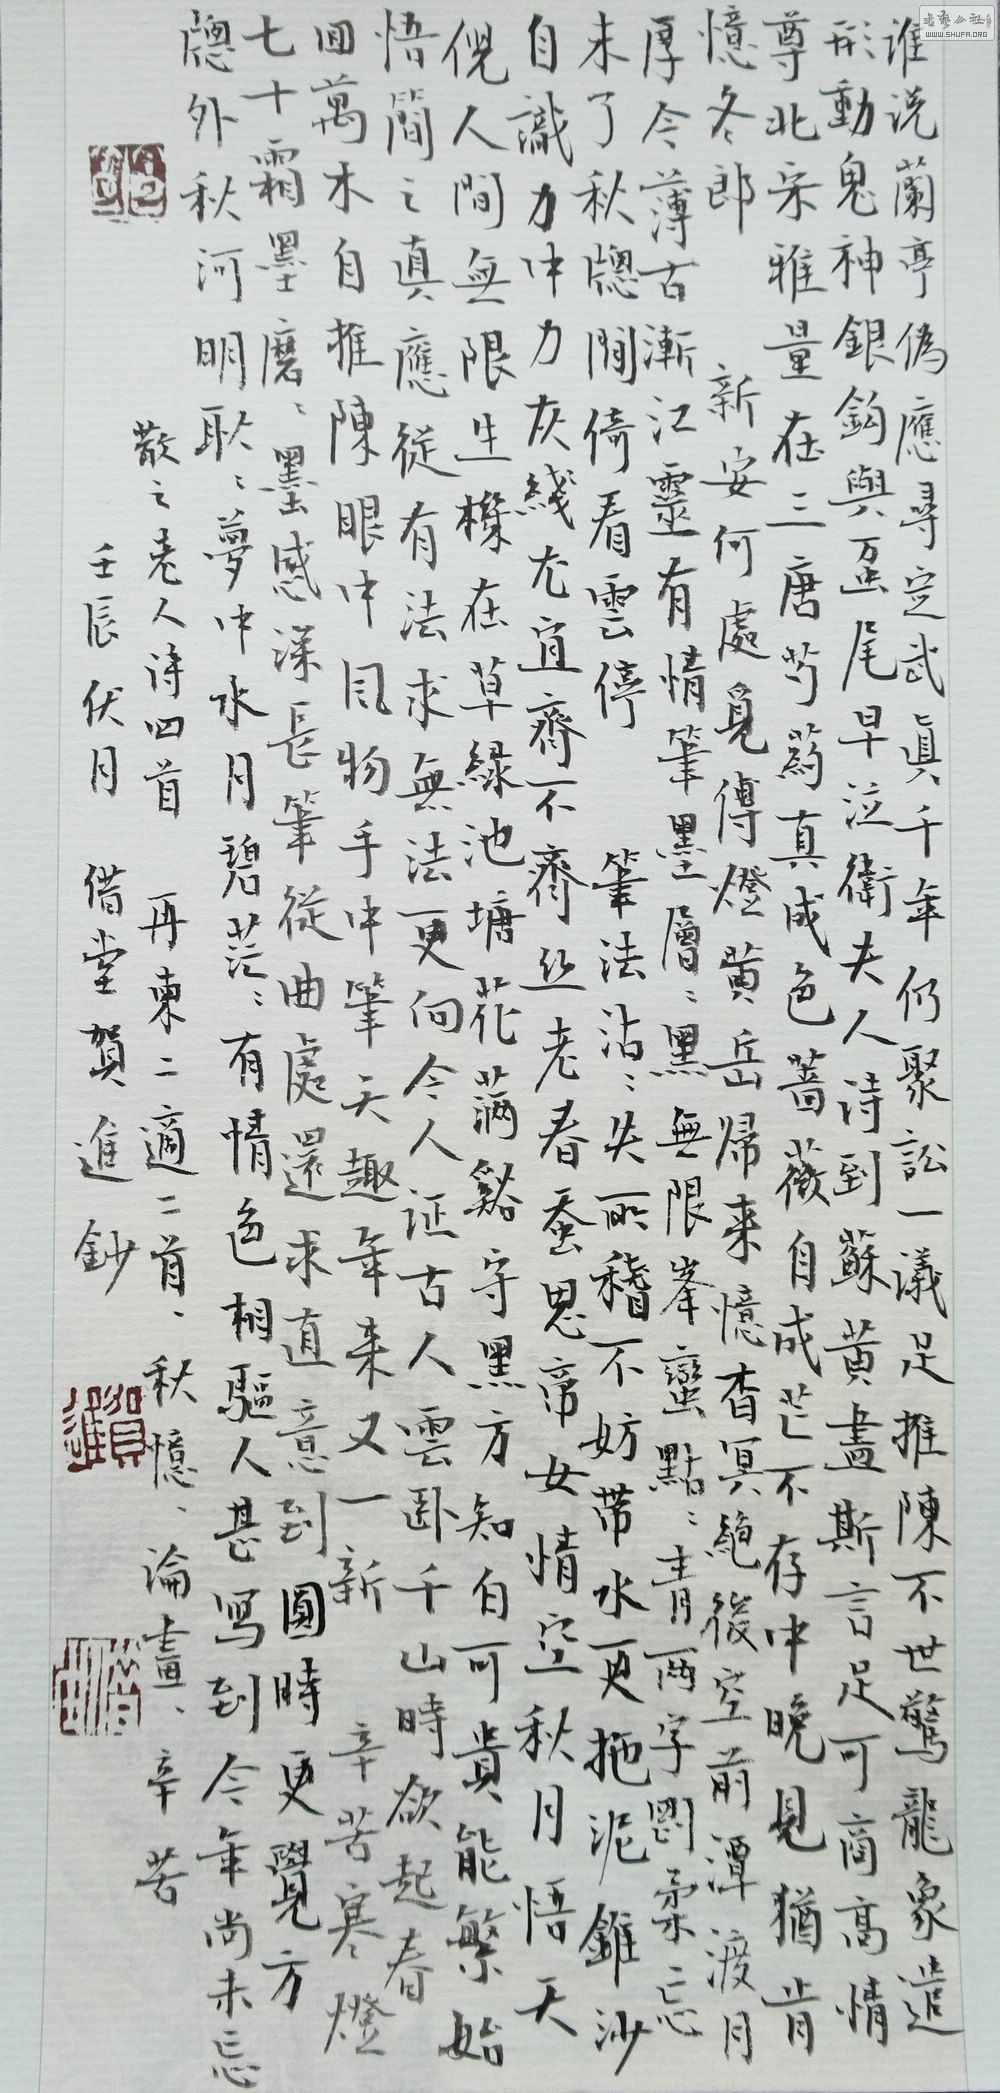 誰説蘭亭偽應尋定武真千年仍聚訟一議足推陳不世驚龍象遺
形動鬼神銀鈎與蠆尾早泣衛夫人詩到蘇黄盡斯言足可商高情
尊北宋雅量在三唐芍药真成色薔薇自成芒不存中晚見猶肯
憶冬郎 新安何處覓傳燈黄岳歸来憶杳冥絶後空前潭渡月
厚今薄古漸江靈有情筆墨層〻黑無限峯巒點〻青兩字剛柔忘
未了秋牕閒倚看雲停 筆法沾〻失所稽不妨带水更拖泥錐沙
自識力中力灰綫尤宜齊不齊丝老春蚕思帝女情空秋月悟天
倪人間無限生機在草緑池塘花满谿 守黑方知白可貴能繁始
悟簡之真應從有法求無法更向今人证古人雲卧千山時欲起春
回萬木自推陳眼中風物手中筆天趣年来又一新 辛苦寒燈
七十霜墨磨〻墨感深長筆從曲處還求直意到圓時更覺方
牕外秋河明耿〻夢中水月碧茫〻有情色相驅人甚寫到今年尚未忘
散之老人诗四首 再柬二適二首、秋憶、論畫、辛苦
壬辰伏月 借堂賀進鈔
賀進
書藝公社
WWW.SHUFA.ORG